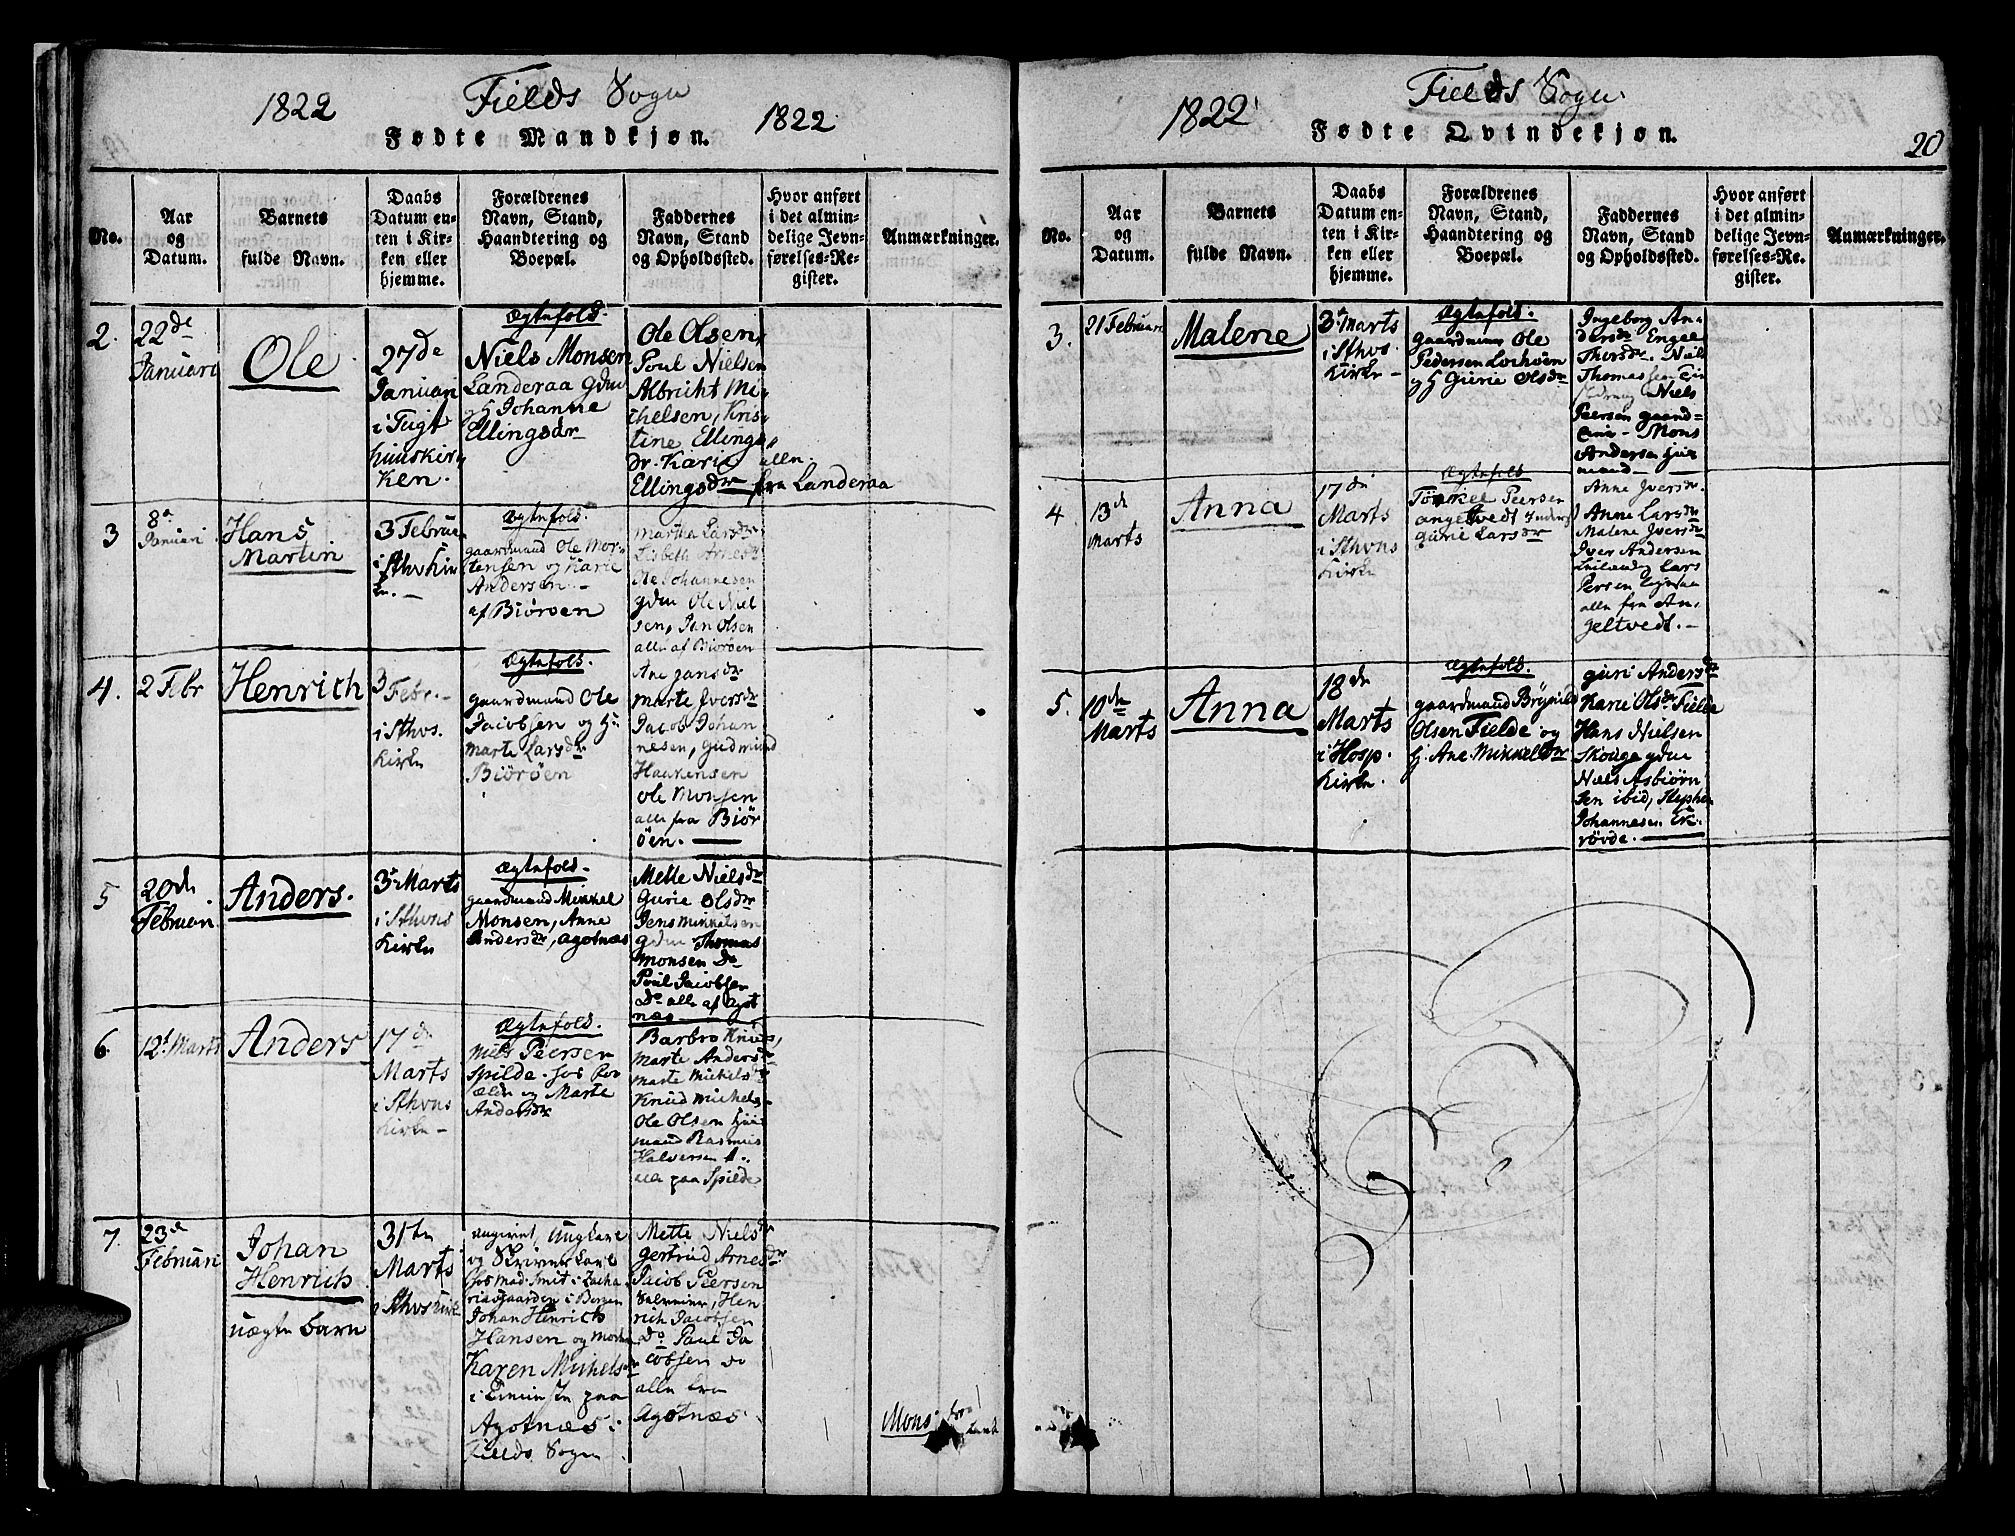 1822
Fields Sogn
1822
Fødte Mandkjøn.
No.
Aar
og
Datum.
Barnets
fulde Navn.
Daabs
Datum en-
ten i Kir-
ken eller
hjemme.
Forældrenes
Navn, Stand,
Haandtering og
Boepæl.
Faddernes
Navn, Stand
og Opholdssted.
Hvor anført
i det almin-
delige Jevn-
førelses-Re-
gister.
Anmærkninger.
2.
22de
Januari
Ole
27de
Januari
i Tugt
huuskir
ken.
Ægtefold.
Niels Monsen
Landeraa gdm
og H Johanne
Ellingsdr
Ole Olsen,
Poul Nielsen
Albricht Mi-
chelsen, Kris-
tine Ellings
dr. Karie alle
Ellingsdr fra Landeraa
3
8a
Januari
Hans
Martin
3 Februar
i Sthv Kir
ke.
Ægtefold.
gaardmand Ole Mor-
tensen og Karie
Andersen.
af Biöröen
Martha Larsdr
Lisbeth Arnesdr
Ole Johannesen
gdm Ole Niel
sen, Jan Olsen
alle af Biöröen
4.
2 Febr
Henrich
3
Febr.
i Sthvs.
Kirke
Ægtefold.
gaardmand Ole
Jacobsen og H:
Marte Larsdr
Biöröen
Ane Jansdr
Marte Iversdr
Jacob Johan
nesen, Gudmund
Haakensen
Ole Monsen
alle fra Biör
öen.
5
20de
Februari
Anders.
3. Marts
i Sthvns
Kirke
Ægtefold.
gaardmand Mikkel
Monsen, Anne
Andersdr, Agotnæs
Mette Nielsdr
Gurie Olsdr
Jens Mikkelsen
gdm Thomas
Monsen Do
Poul Jacobsen
Do alle af Agot
næs
6.
12t Marts
Anders
17de
Marts
i Sthvns
Kirke
Ægtefold.
Niels Peersen
Spilde
og Marte
Andersdr
Barbro Knuds,
Marte Andersdr
Marte Mickelsdr
Knud Michels
Ole Olsen Huu
mand Rasmus
Halversen
alle paa Spilde
7.
23de
Februari
Johan
Henrich
uægte barn
31te
Marts
i Sthvs Kirke
angivet, Ungkarl
og Skriverkarl
hos Mad. Smit i Zacha
riasgaarden i Bergen
Johan Henrich
Hansen og Moder
Karen Michelsdr
paa
Agotnæs i
Fields Sogn
Mette Nielsdr
Gertrud Arnesdr
Jacob Peersen
Hen
rich Jacobsen
Do Paul Ja
cobsen do
alle fra
Agotnæs
Mons
1822
Fields Sogn
Fødte Qvindekjøn.
20
No.
Aar
og
Datum.
Barnets
fulde Navn.
Daabs
Datum en-
ten i Kir-
ken eller
hjemme.
Forældrenes
Navn, Stand,
Haandtering og
Boepæl.
Faddernes
Navn, Stand
og Opholdssted.
Hvor anført
i det almin-
delige Jevn-
førelses-Re-
gister.
Anmærkninger.
3.
21 Februari
Malene
3. Marts
i Sthvs.
Kirke
Ægtefold.
gaardmand Ole
Pedersen
og H Gurie Olsdr
Ingeborg An-
dersdr. Engel
Thorsdr. Niels
Thomassen
Niels
Peersen gaard
Mons
Andersen Huu
mand
4
13de
Marts
Anna
17de
Marts
i Sthvns
Kirke
Ægtefold
Peersen
Angeltvedt
Gurie Larsdr
Anne Iversdr.
Anne Larsdr
Malene Iversdr
Iver Andersen
Lars
Persen
alle fra An-
geltvedt.
5.
10de
Marts
Anna
18de
Marts
i Hosp.
Kirke.
Ægtefold.
gaardmand Brynild
Olsen Fielde og
H. Ane Mikkelsdr
Guri Andersdr
Karie Olsdr Fielde
Hans Nielsen
Skouge gdm
Niels Asbiörn
sen ibid, Stephen
Johannesen. Ek-
rövde.